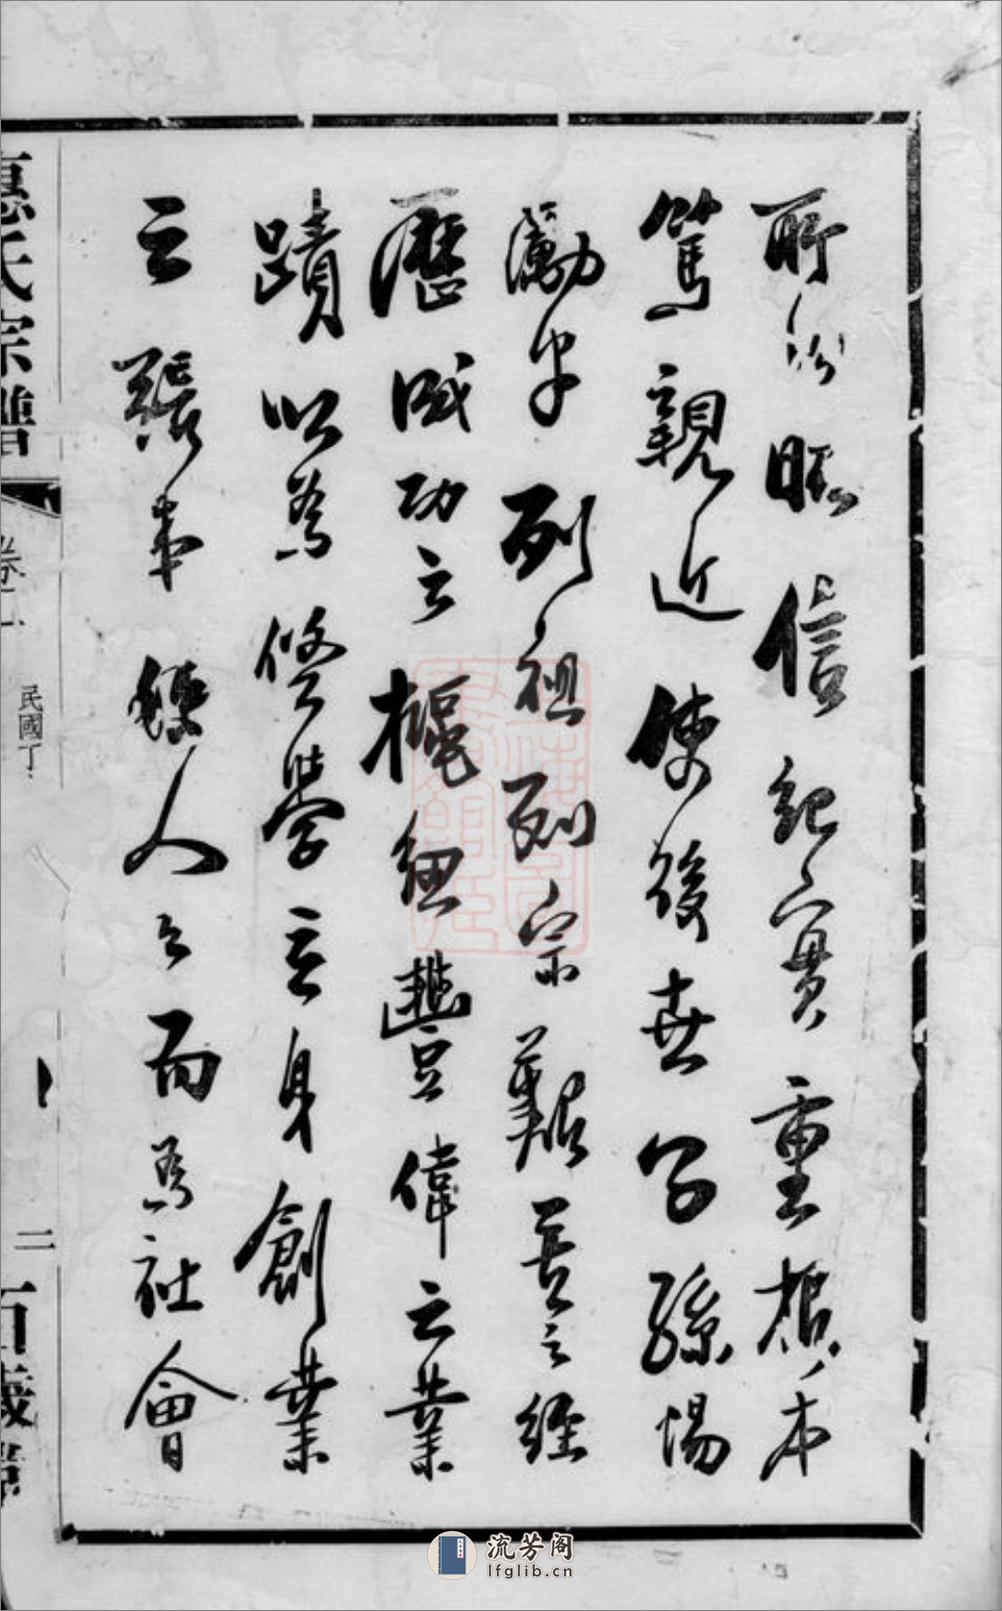 所以昭信紀實重根本
篤親近使後世子孫惕
勵乎列祖列宗艱苦之經
歷成功之樞紐豐偉之業
蹟以為修學立身創業
之張本雖人人而為社會
惠氏宗譜
卷二
民國丁
二
百歲堂
流芳阁
lfglib.cn